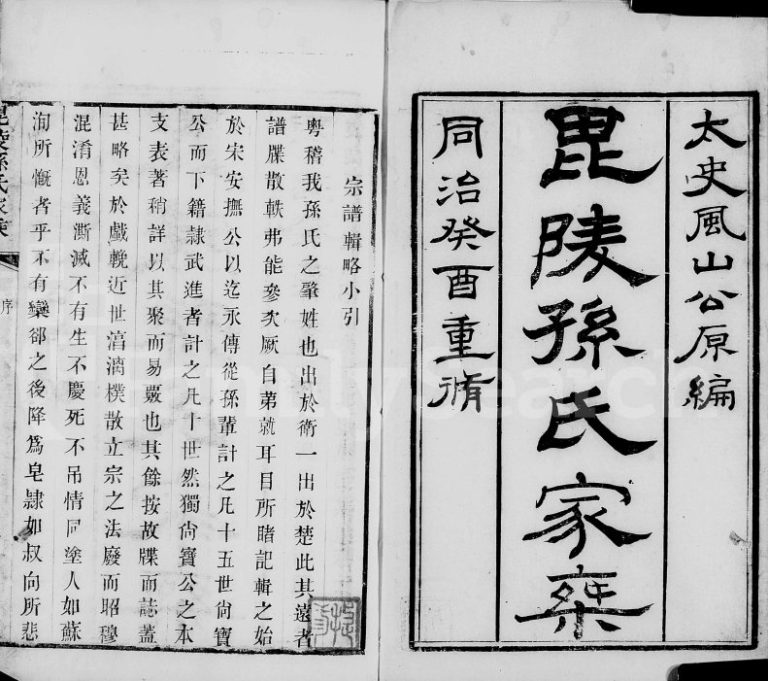 太史風山公原編
毘陵孫氏家椉
同治癸酉重脩
宗譜輯略小引
粵稽我孫氏之肇姓也出於衛一出於楚此其遠者
譜牒散軼弗能參攷厥自弟就耳目所睹記輯之始
於宋安撫公以迄永傳從孫輩計之凡十五世尙寶
公而下籍隷武進者計之凡十世然獨尙寶公之本
支表著稍詳以其聚而易覈也其餘按故牒而誌蓋
甚略矣於戲輓近世湻漓樸散立宗之法廢而昭穆
混淆恩義澌滅不有生不慶死不吊情同塗人如蘇
洵所慨者乎不有欒郤之後降爲皂隷如叔向所悲
毘陵孫氏家椉
序
FamilySearch